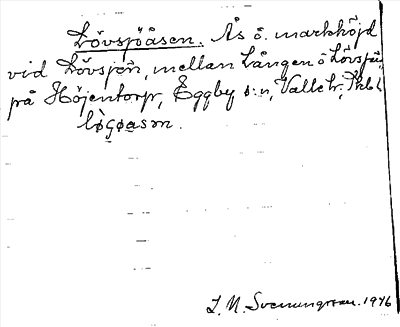 Lövsjöåsen. Ås o. markhöjd
vid Lövsjön, mellan Lången o Lövsjön,
på Höjentorp, Eggby s:n, Valle hr, Skbl
løʂøasɷn.
L. N. Svenungsson. 1946